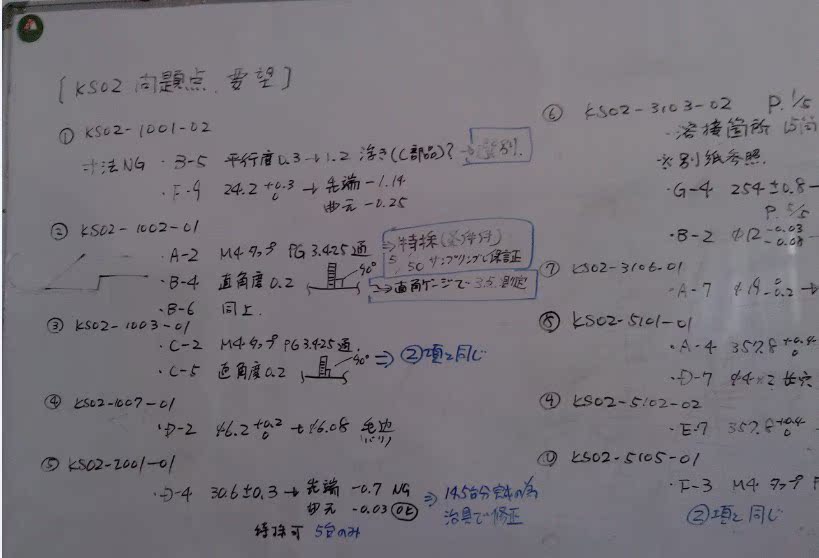 [KS02 問題点、要望]
① KS02-1001-02
寸法NG ・B-5 平行度0.3→1.2 浮き(C部品)? →選別.
・F-9 24.2 +0.3 0 → 先端 -1.14
曲元 -0.25
② KS02-1002-01
・A-2 M4タップ PG 3.425通 ⇒特採(条件付)
50サンプリングし保証
・B-4 直角度0.2 90° ⇒直角ゲージで
・B-6 同上.
③ KS02-1003-01
・C-2 M4タップ PG3.425通.
・C-5 直角度0.2 90° ⇒ ②項と同じ
④ KS02-1007-01
・D-2 46.2 +0.2 0 → 46.08 毛边
(バリ)
⑤ KS02-2001-01
・D-4 30.6±0.3 → 先端 -0.7 NG ⇒ 145台分完成の為
曲元 -0.03 OK 治具で修正
特採可 5台のみ
⑥ KS02-3103-02 P. 1/5
・溶接箇所
※別紙参照.
・G-4 254±0.8
P. 5/5
・B-2 φ12 -0.03 -0.08
⑦ KS02-3106-01
・A-7 φ19 0 -0.2 →
⑧ KS02-5101-01
・A-4 357.8 +0.4 0
・D-7 φ4×2 长穴
⑨ KS02-5102-02
・E-7 357.8 +0.4 0
⑩ KS02-5105-01
・F-3 M4 タップ
②項と同じ